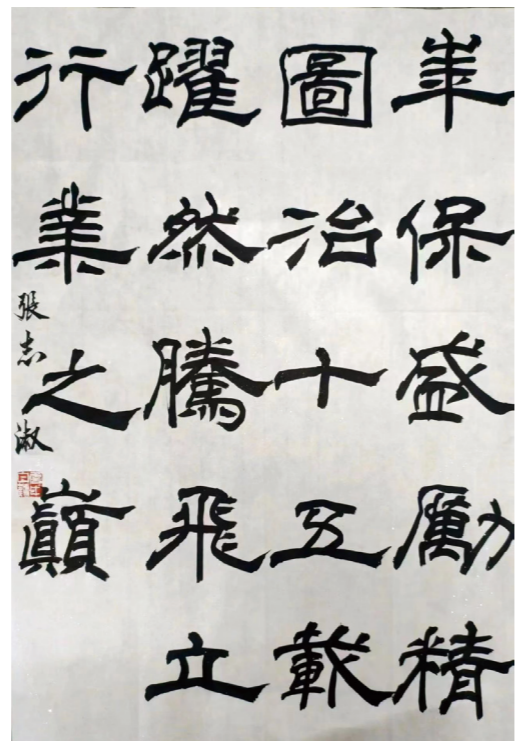 華保盛勵精
圖治十五載
躍然騰飛立
行業之巔
張志淑